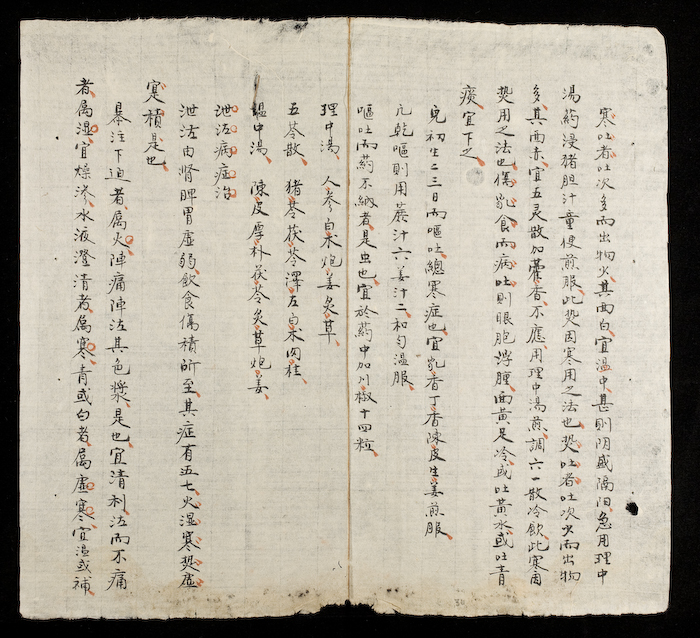 寒吐者吐次多而出物少其面白宜温中甚則阴盛隔阳急用理中
湯药浸猪胆汁童便煎服此热因寒用之法也热吐者吐次少而出物
多其面赤宜五灵散加藿香不應用理中湯煎調六一散冷飲此寒因
热用之法也傷乳食而病吐則眼胞浮腫面黄足冷或吐黄水或吐青
痰宜下之
兒初生二三日而嘔吐總寒症也宜乳香丁香陳皮生姜煎服
凢乾嘔則用蔗汁六姜汁二和匀温服
嘔吐而葯不納者是虫也宜於葯中加川椒十四粒
理中湯 人參白术炮姜炙草
五苓散 猪苓茯苓澤左白术肉桂
温中湯 陳皮厚朴茯苓炙草炮姜
泄泻病症治
泄泻由肾脾胃虚弱飲食傷積所至其症有五七火湿寒热虚
寒積是也
暴注下迫者属火陣痛陣泻其色漿是也宜清利泻而不痛
者属湿宜燥渗水液澄清者属寒青或白者属虚寒宜温或補